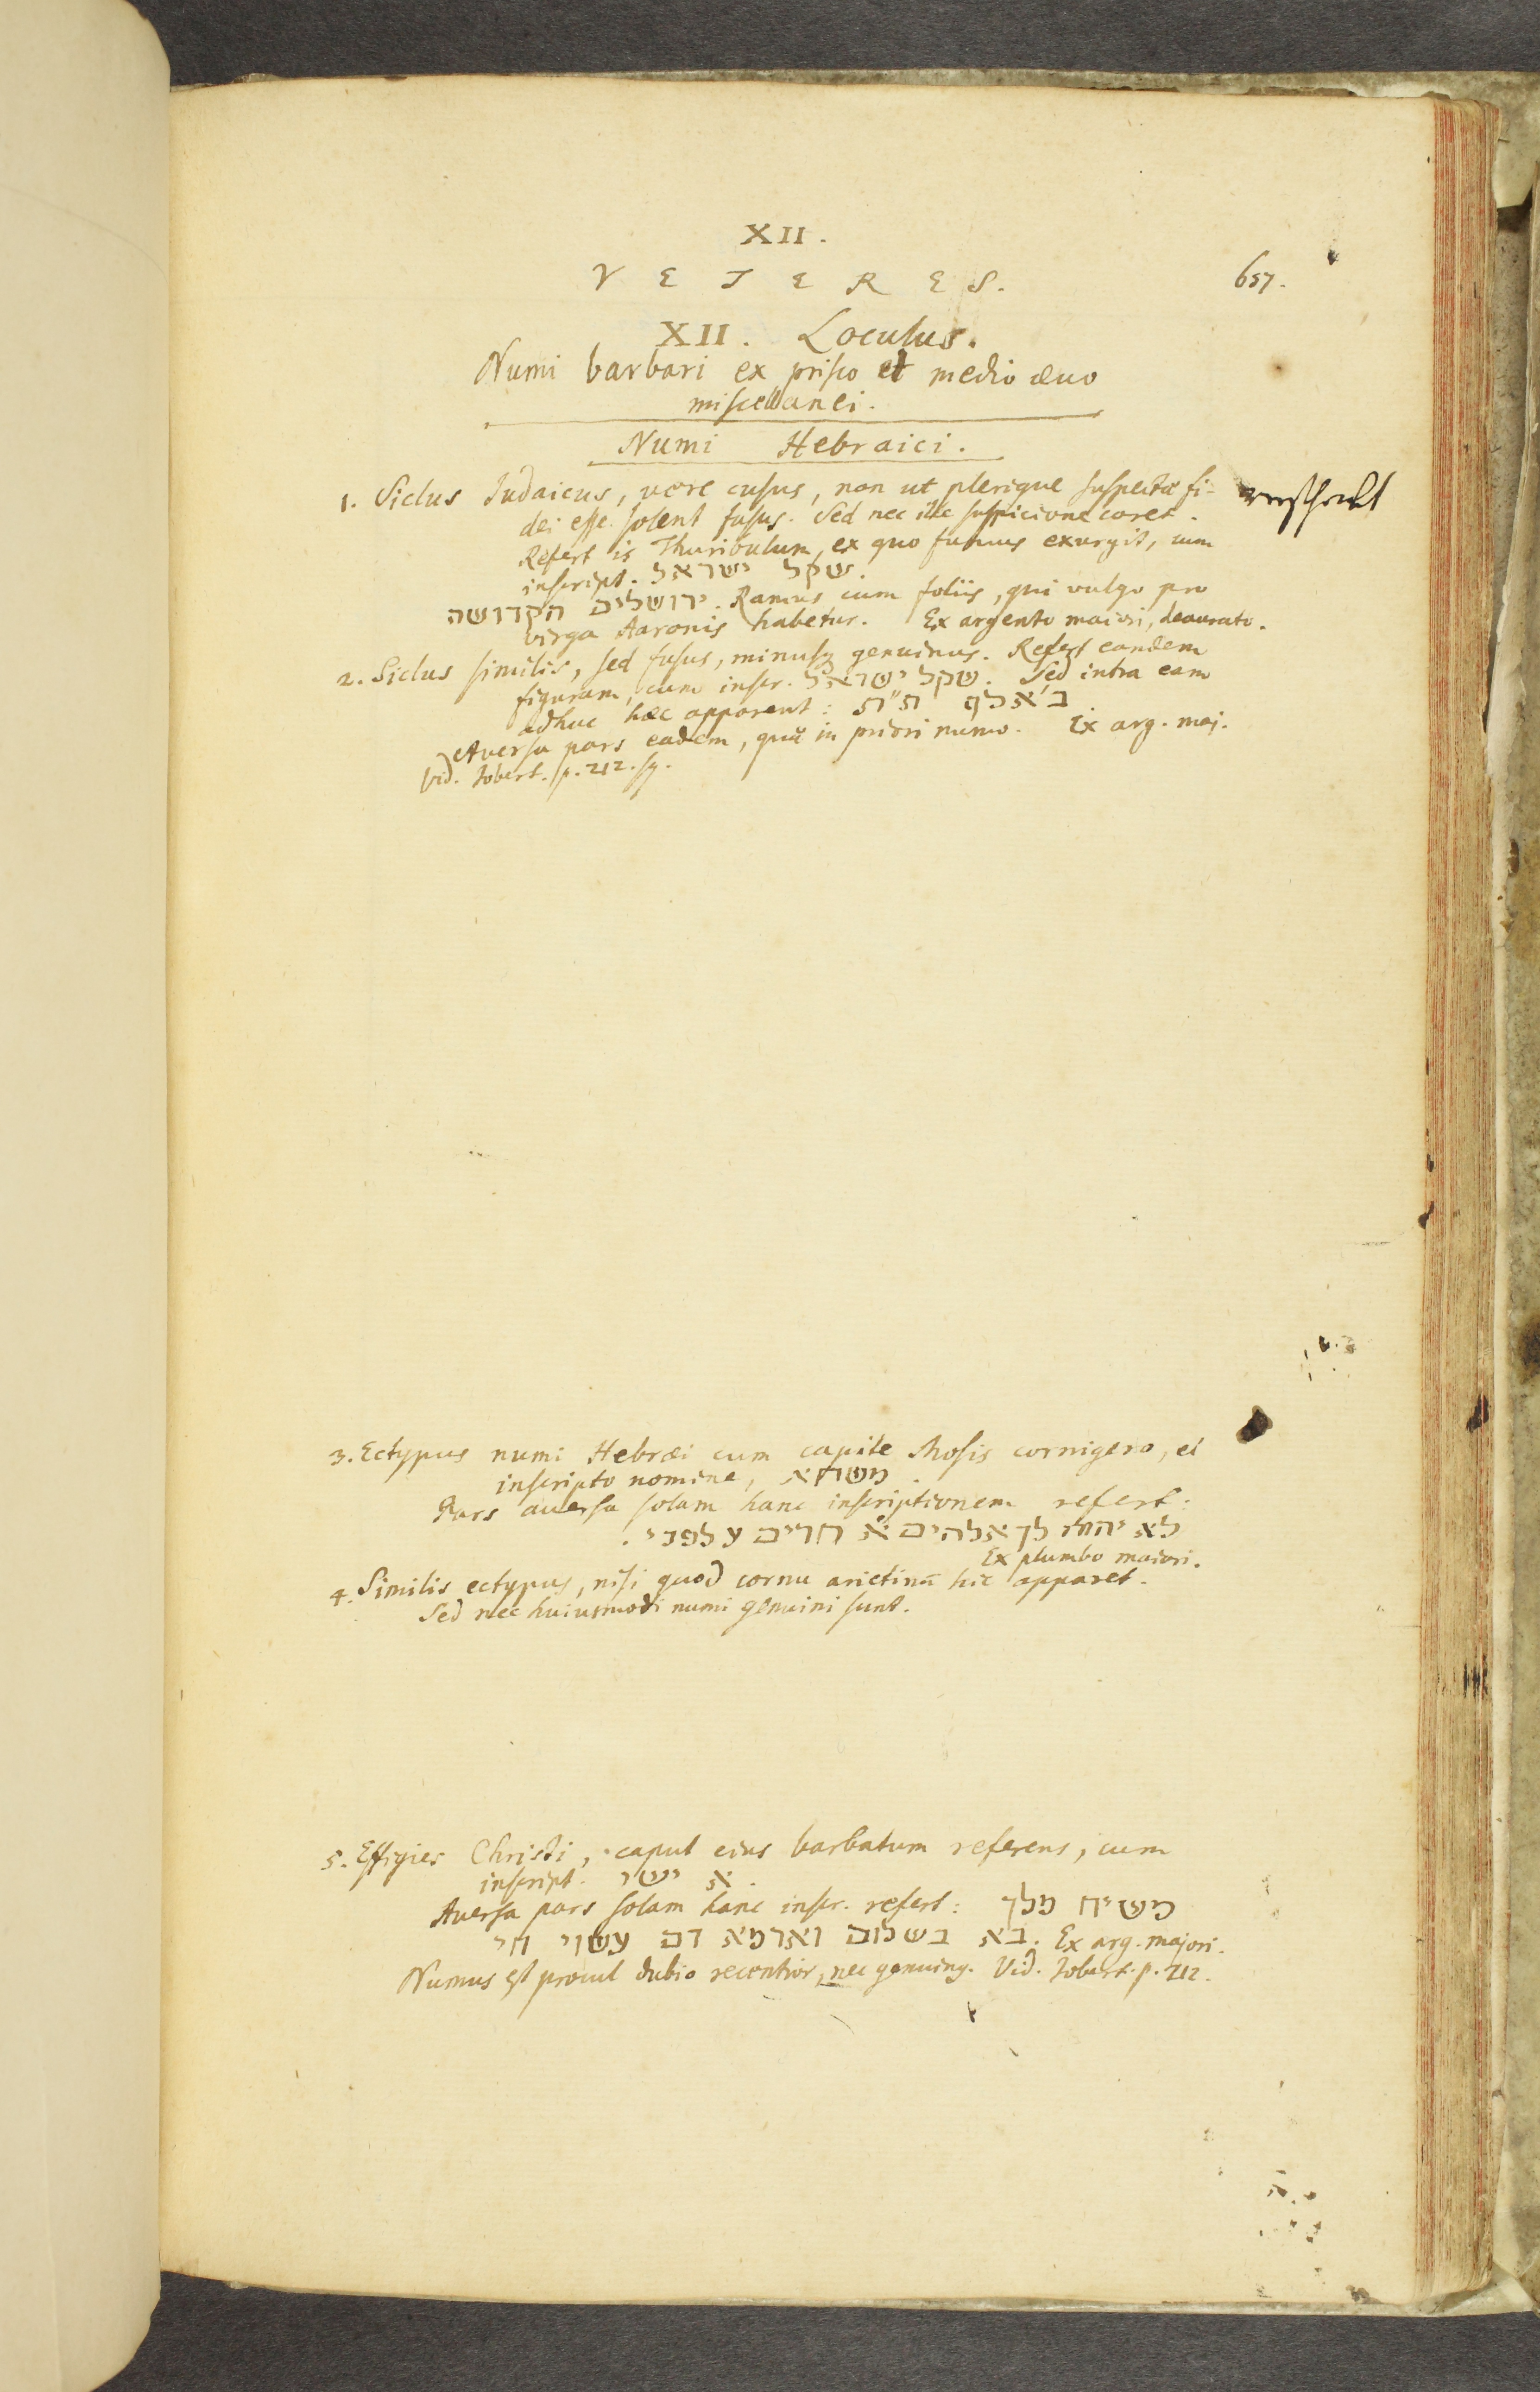 XII.
VETERES.
657.
XII. Loculus.
Numi barbari ex prisco et medio ævo
miscellanei.
Numi Hebraici.
1. Siclus Judaicus, vere cusus, non ut plerique suspectæ fi-
dei esse solent fusus. Sed nec ille suspicione caret.
Refert is Thuribulum, ex quo fumus exurgit, cum
inscript. שקל ישראל.
ירושלים הקדושה. Ramus cum foliis, qui vulgo pro
virga Aaronis habetur. Ex argento maiori, deaurato.
2. Siclus similis, sed fusus, minusq genuinus. Refert eandem
figuram, cum inscr. שקל ישראל. Sed intra eam
adhuc hæc apparent:
Aversa pars eadem, quæ in priori numo. Ex arg. maj.
Vid. Jobert. p. 212. sq.
3. Ectypus numi Hebræi cum capite Mosis cornigero, ei
inscripto nomine,
Pars aversa solam hanc inscriptionem refert:
לא יהיה לך אלהים א חרים עלפני.
Ex plumbo maiori.
4. Similis ectypus, nisi quod cornu arietinū hic apparet.
Sed nec huiusmodi numi genuini sunt.
5. Effigies Christi, caput eius barbatum referens, cum
inscript. א ישו.
Aversa pars solam hanc inscr. refert: משיח מלך
בא בשלום ואדמא דם עשוי חי. Ex arg. majori.
Numus est procul dubio recentior, nec genuinq. Vid. Jobert. p. 212.